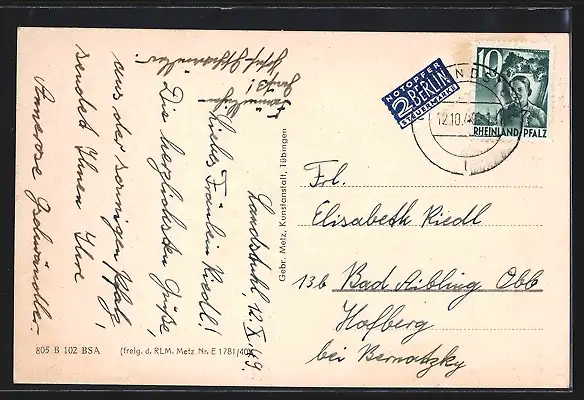 Landstuhl, 12.X.49.
Liebes Fräulein Riedl!
Die herzlichsten Grüße,
aus der sonnigen Pfalz,
sendet Ihnen Ihre
Annerose
Gebr. Metz, Kunstanstalt, Tübingen
805 B 102 BSA
(freig. d. RLM. Metz Nr. E 1781/40)
NOTOPFER
2 BERLIN
STEUERMARKE
10
RHEINLAND-PFALZ
12.10.49
Frl.
Elisabeth Riedl
13b Bad Aibling Obb
Hofberg
bei Bernatzky